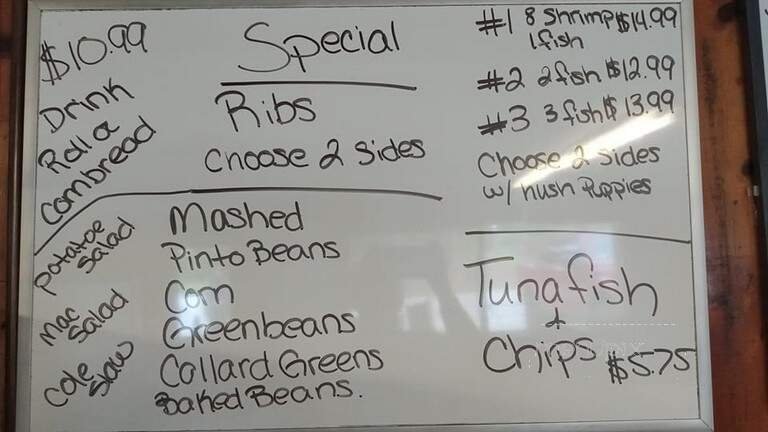 $10.99
Drink
Roll or
Cornbread
Special
Ribs
Choose 2 Sides
#1 8 Shrimp $14.99
1 fish
#2 2 fish $12.99
#3 3 fish $13.99
Choose 2 sides
w/ hush Puppies
Potatoe
Salad
Mac
Salad
Cole
Slaw
Mashed
Pinto Beans
Corn
Greenbeans
Collard Greens
Baked Beans.
Tuna fish
+
Chips $5.75